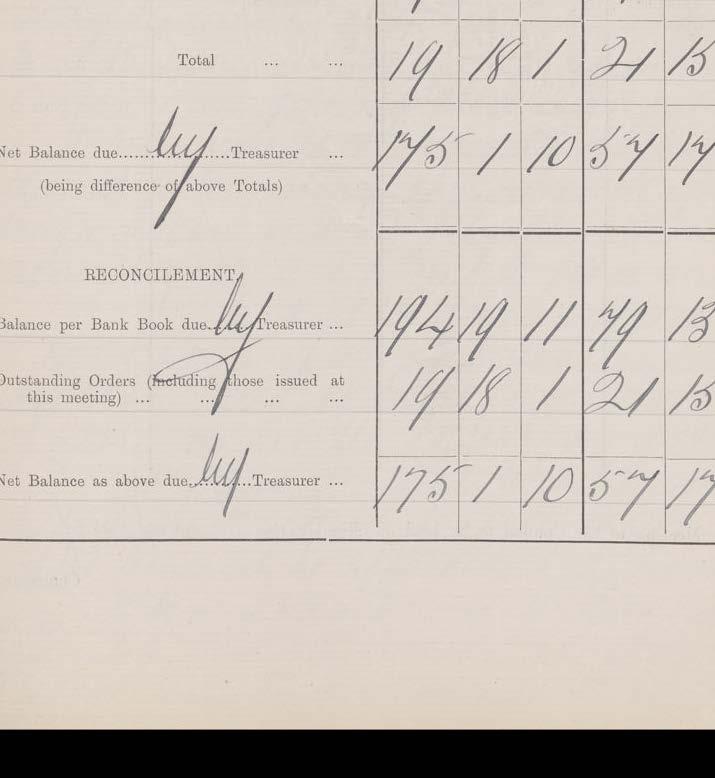 Total ... ... 19 18 1 21 15
Net Balance due......by......Treasurer ... 175 1 10 57 17
(being difference of above Totals)
RECONCILEMENT.
Balance per Bank Book due..by..Treasurer ... 194 19 11 79 13
Outstanding Orders (including those issued at
this meeting) ... ... ... ... 19 18 1 21 15
Net Balance as above due..by...Treasurer ... 175 1 10 57 17